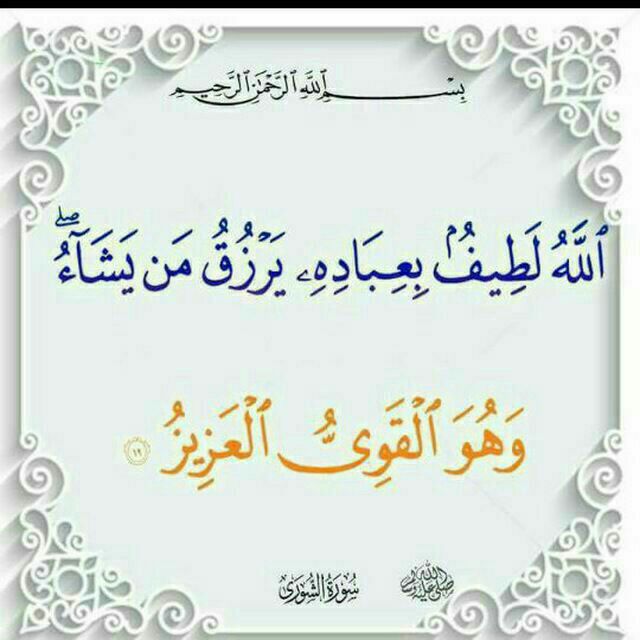 بِسْمِ ٱللَّهِ ٱلرَّحْمَٰنِ ٱلرَّحِيمِ
ٱللَّهُ لَطِيفٌۢ بِعِبَادِهِۦ يَرْزُقُ مَن يَشَآءُۖ
وَهُوَ ٱلْقَوِىُّ ٱلْعَزِيزُ ١٩
صلى الله عليه وسلم سورة الشورى